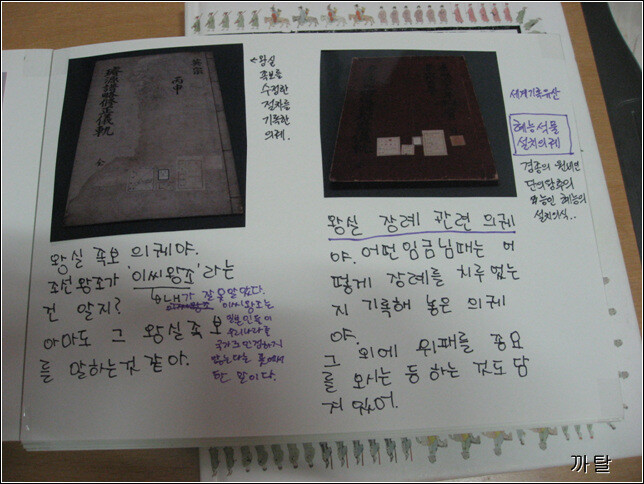 璿源譜略修正儀軌
丙申
全
←왕실
족보를
수정한
절차를
기록한
의궤.
왕실 족보 의궤야.
조선왕조가 '이씨왕조'라는
건 알지?
아마도 그 왕실족보
를 말하는것 같아.
내가 잘못 알았다.
이씨왕조는
일본인들이
우리나라를
국가로 인정하지
않는다는 뜻에서
한 말이다.
세계기록유산
혜릉석물
설치의궤
경종의 원비인
단의왕후의
능인 혜릉의
설치의식..
왕실 장례 관련 의궤
야. 어떤임금님때는 어
떻게 장례를 치루었는
지 기록해 놓은 의궤
야.
그 외에 위패를 종묘
를 모시는 등 하는 것도 담
겨 있어.
까탈